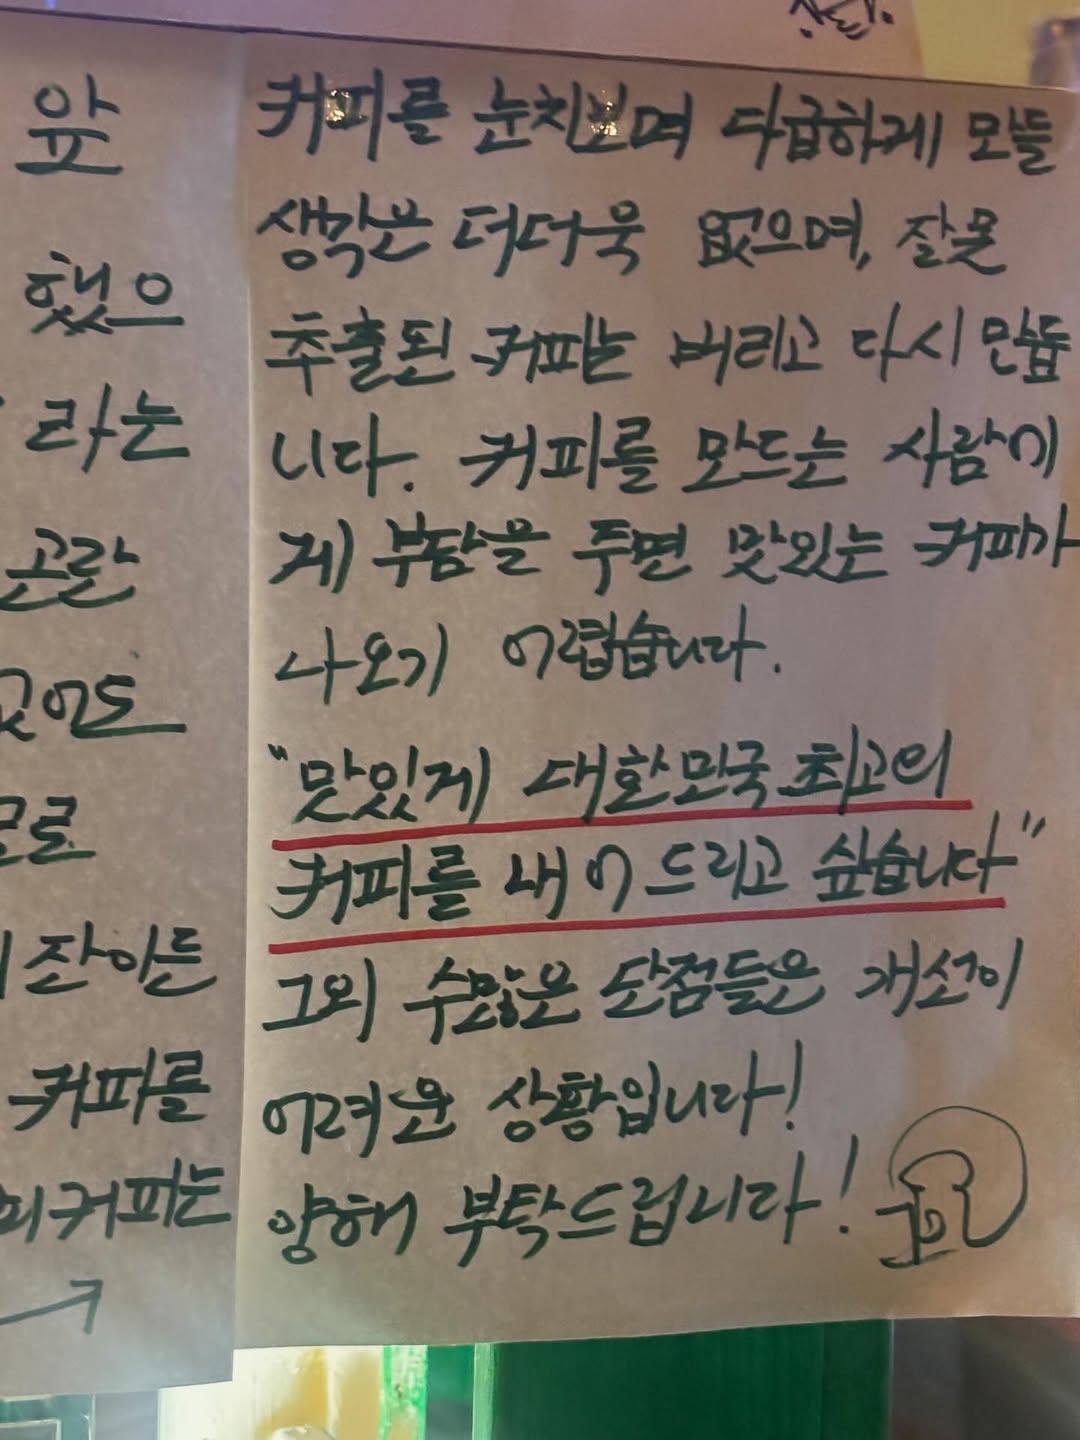 앞
했으
라는
곤란
없어도
므로
잔이든
커피를
피커피는
→
커피를 눈치보며 다급하게 만들
생각은 더더욱 없으며, 잘못
추출된 커피는 버리고 다시 만듭
니다. 커피를 만드는 사람에
게 부담을 주면 맛있는 커피가
나오기 어렵습니다.
"맛있게 대한민국 최고의
커피를 내어 드리고 싶습니다"
그외 수많은 단점들은 개선이
어려운 상황입니다!
양해 부탁드립니다!